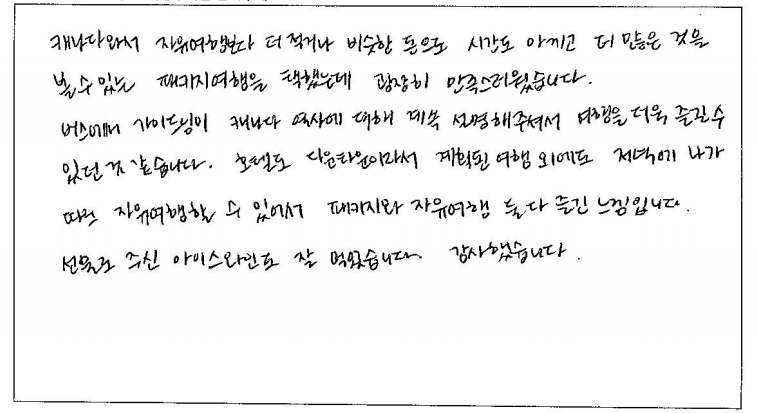 캐나다와서 자유여행보다 더 적거나 비슷한 돈으로 시간도 아끼고 더 많은 것을
볼 수 있는 패키지여행을 택했는데 굉장히 만족스러웠습니다.
버스에서 가이드님이 캐나다 역사에 대해 계속 설명해주셔서 여행을 더욱 즐길 수
있던 것 같습니다. 호텔도 다운타운이라서 계획된 여행 외에도 저녁에 나가
따로 자유여행할 수 있어서 패키지와 자유여행 둘 다 즐긴 느낌입니다.
선물로 주신 아이스와인도 잘 먹었습니다. 감사했습니다.